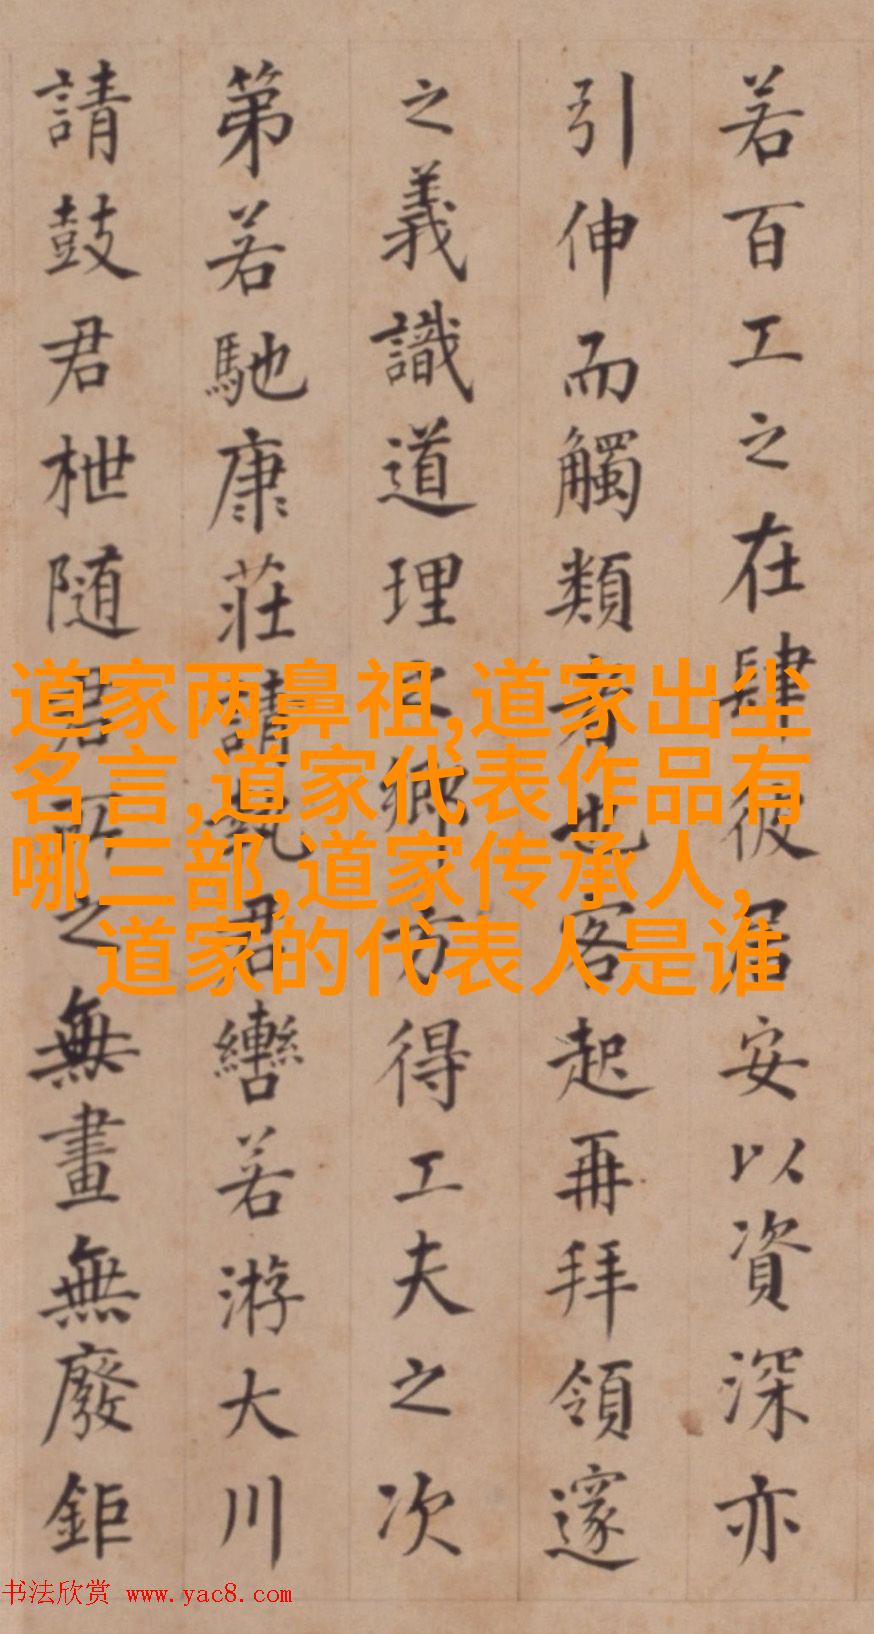 若百工之在肆彼居安以資深亦
引伸而觸類者也客起再拜領邃
之義識道理之鄉方得工夫之次
第若馳康莊請執君轡若游大川
請鼓君枻随君所之無畫無廢鉅
道家两鼻祖,道家出尘
名言,道家代表作品有
哪三部,道家传承人,
道家的代表人是谁
书法欣赏 www.yac8.com